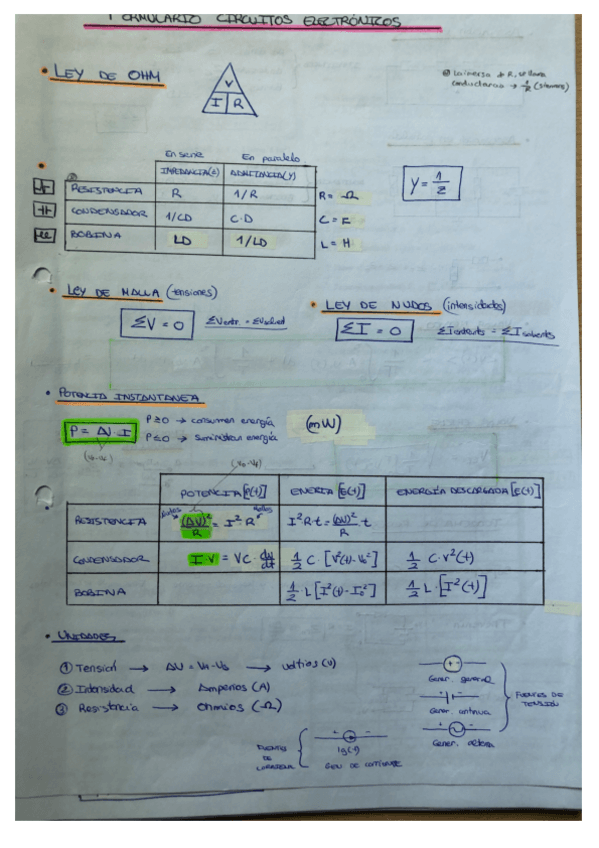 FORMULARIO CIRCUITOS ELECTRÓNICOS
• LEY DE OHM
V
I R
La inversa de R, se llama
conductancia → 1/R (siemens)
En serie En paralelo
IMPEDANCIA(Z) ADMITANCIA(Y)
RESISTENCIA R 1/R R = Ω
CONDENSADOR 1/CD C·D C = F
BOBINA LD 1/LD L = H
Y = 1/Z
• LEY DE MALLA (tensiones)
ΣV = 0 ΣVentr. = ΣVsalid
• LEY DE NUDOS (intensidades)
ΣI = 0 ΣI entrants = ΣI salients
• POTENCIA INSTANTANEA
P = ΔV · I P≥0 → consumen energía (mW)
P≤0 → suministran energía
POTENCIA [P(t)] ENERGÍA [E(t)] ENERGÍA DESCARGADA [E(t)]
RESISTENCIA (ΔV)²/R = I²·R I²Rt = (ΔV)²/R t
CONDENSADOR I·V = VC·dv/dt 1/2 C·[V²(t)-V₀²] 1/2 C·V²(t)
BOBINA 1/2·L[I²(t)-I₀²] 1/2 L·[I²(t)]
• UNIDADES
① Tensión → ΔV = VA-VB → voltios (V)
② Intensidad → Amperios (A)
③ Resistencia → Ohmios (Ω)
+ -
Gener. general
Gener. continua
Gener. alterna
FUENTES DE TENSIÓN
FUENTES DE CORRIENTE
+ -
Ig(t)
Gen. de corriente